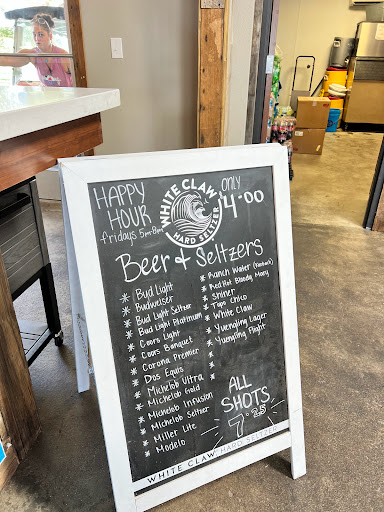 HAPPY
HOUR
fridays 5pm-8pm
WHITE CLAW
HARD SELTZER
ONLY
$4.00
Beer & Seltzers
* Bud Light
* Budweiser
* Bud Light Seltzer
* Bud Light Platinum
* Coors Light
* Coors Banquet
* Corona Premier
* Dos Equis
* Michelob Ultra
* Michelob Gold
* Michelob Infusion
* Michelob Seltzer
* Miller Lite
* Modelo
* Ranch Water
* Red Hot Bloody Mary
* Shiner
* Topo Chico
* White Claw
* Yuengling Lager
* Yuengling Flight
*
*
ALL
SHOTS
7.25
WHITE CLAW HARD SELTZER